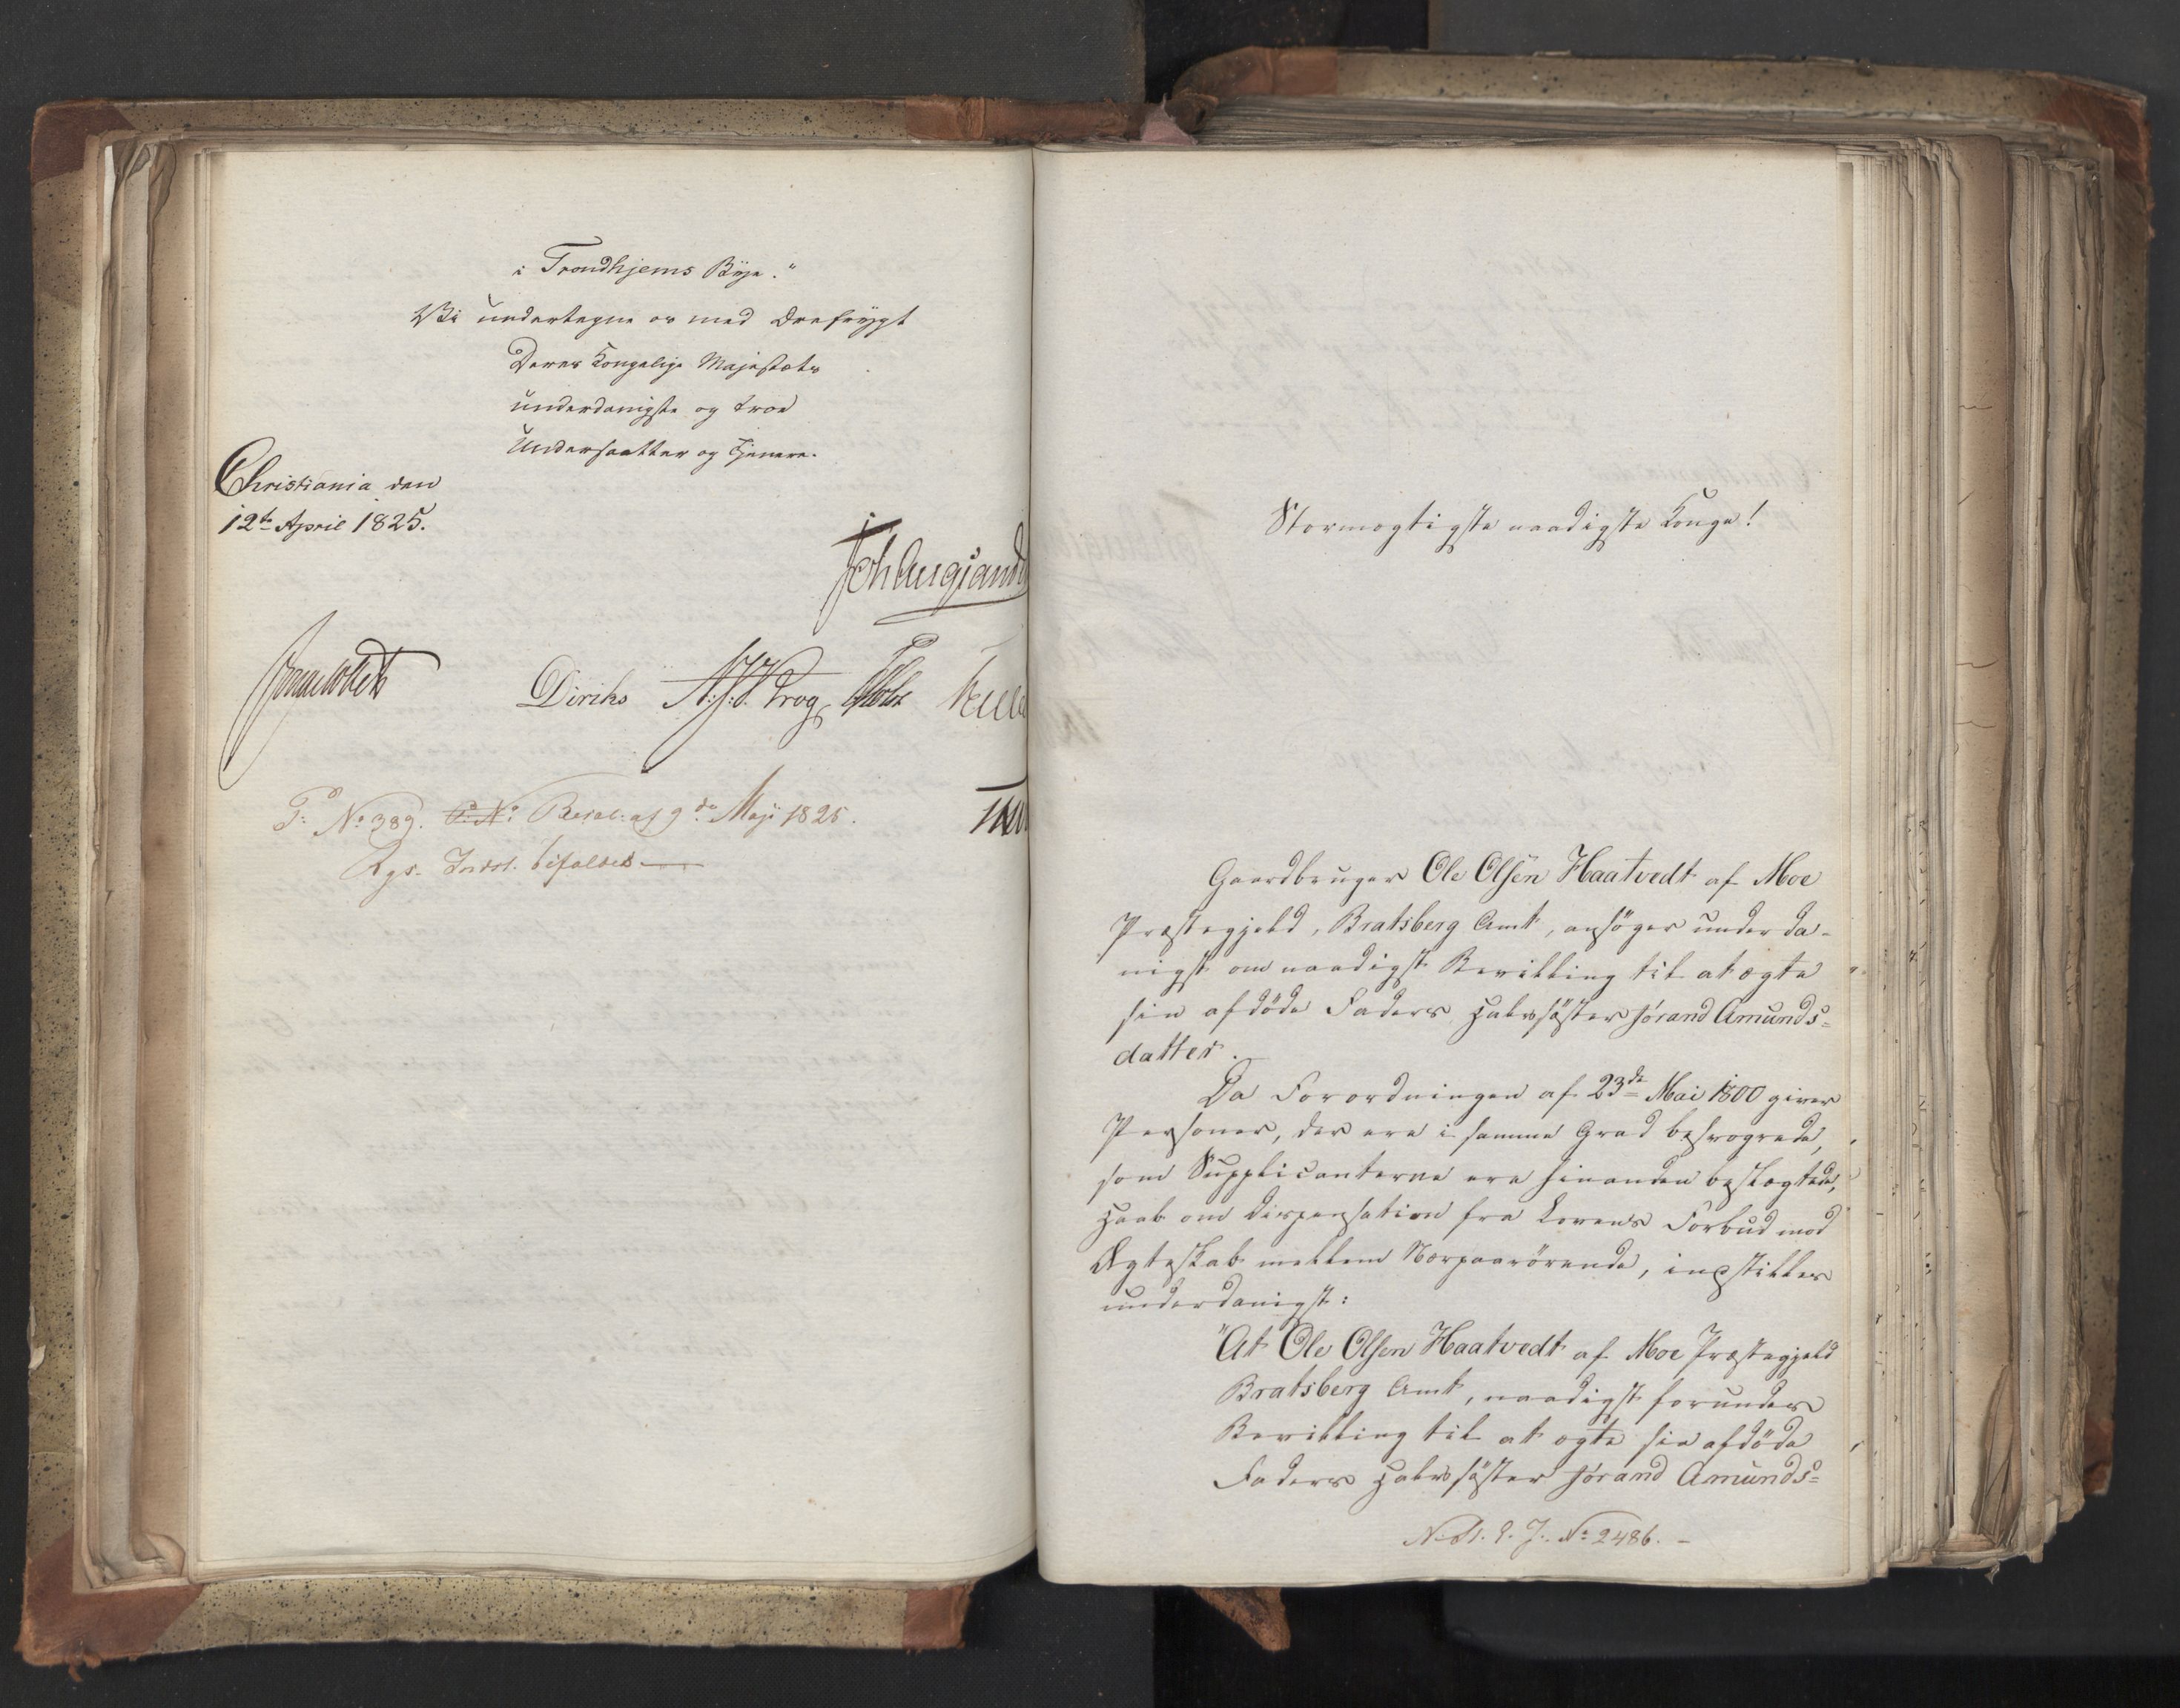 i Trondhjems Bye."
Vi undertegne os med Ærefrygt
Deres Kongelige Majestæts
underdanigste og troe
Undersaatter og Tjenere.
Christiania den
12te April 1825.
Diriks
P: No 389. P: No Resol: af 9de Maji 1825.
Rgs. Indst. bifaldes
Stormægtigste naadigste Konge!
Gaardbruger Ole Olsen Haatvedt af Moe
Præstegjeld, Bratsberg Amt, ansöger underda-
nigst om naadigst Bevilling til at ægte
sin afdöde Faders Halvsöster Jórand Amunds=
datter.
Da Forordningen af 23de Mai 1800 giver
Personer, der ere i samme Grad besvogrede,
som Supplicanterne ere hinanden beslægtede,
Haab om Dispensation fra Lovens Forbud mod
Ægteskab mellem Nærpaarörende, indstilles
underdanigst:
"At Ole Olsen Haatvedt af Moe Præstegjeld
Bratsberg Amt, naadigst forundes
Bevilling til at ægte sin afdöde
Faders Halvsöster Jórand Amunds=
No 2486.